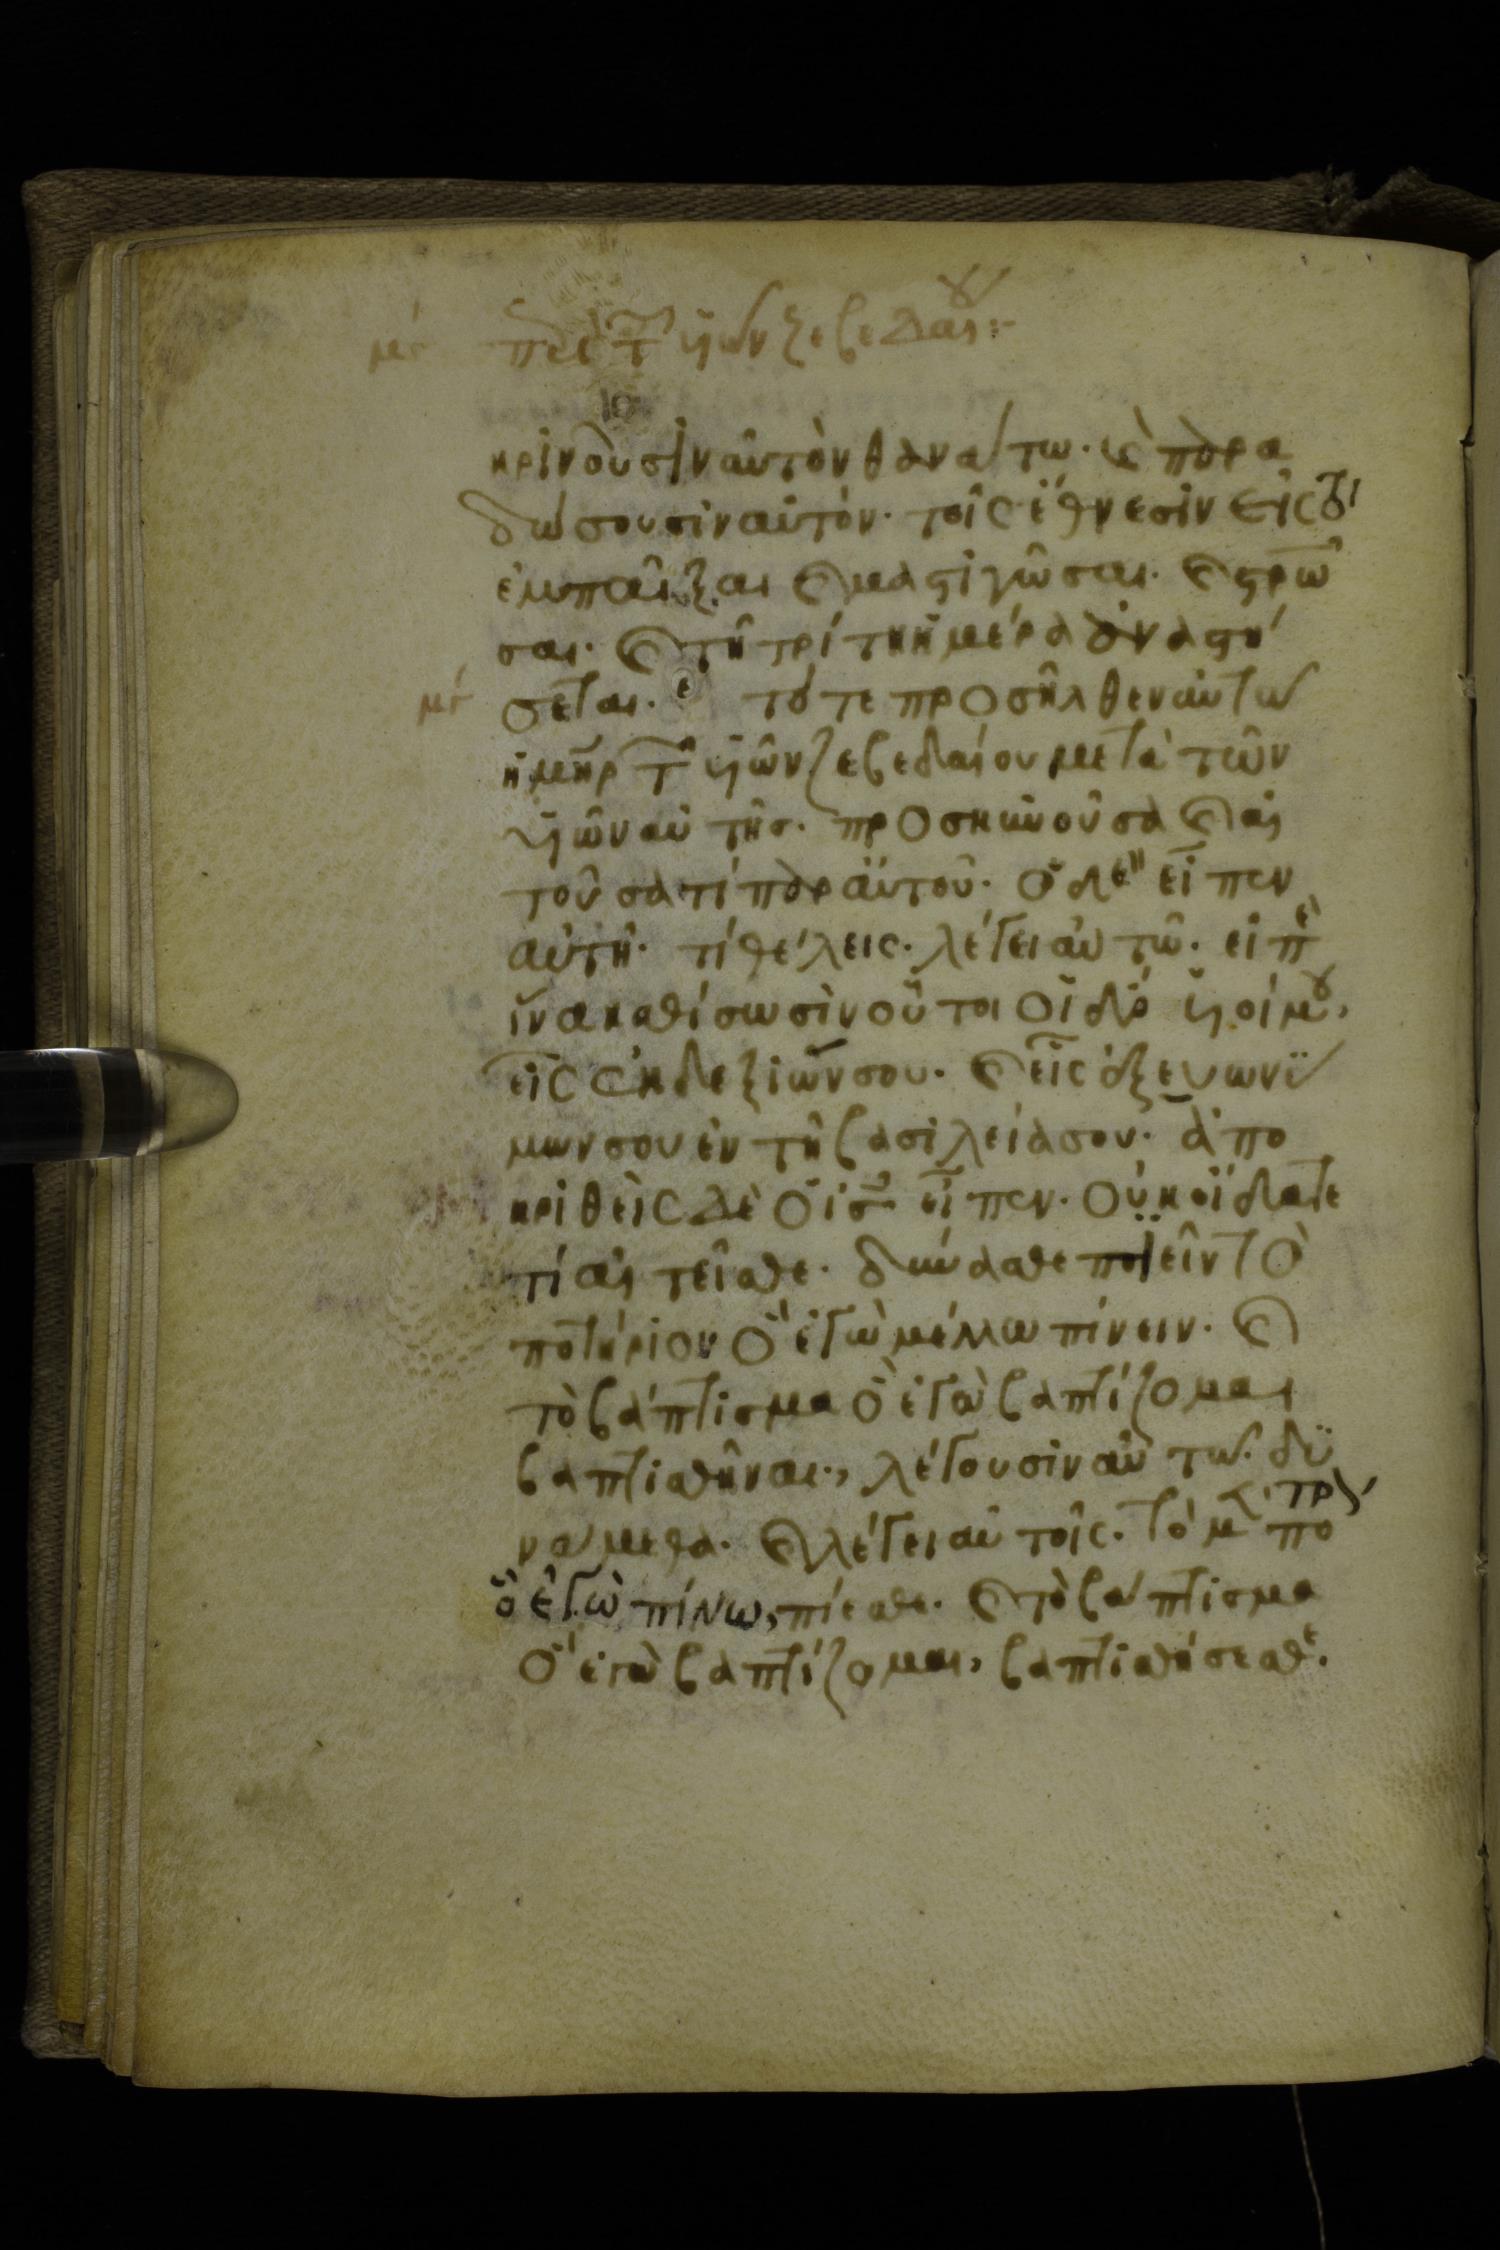 με περὶ τ υἱῶν ζεβεδαίου:-
κρινοῦσιν αὐτὸν θανάτω· καὶ παρα
δώσουσιν αὐτόν· τοῖς ἔθνεσιν εἰς τὸ
ἐμπαῖξαι καὶ μαστιγῶσαι· καὶ στρῶ
σαι· καὶ τῆ τρίτη ἡμέρα ἀναστή
με σεται. τότε προσῆλθεν αὐτῶ
ἡ μηρ τ υἱῶν ζεβεδαίου μετὰ τῶν
υἱῶν αὐτῆς· προσκυνοῦσα καὶ αἰ
τοῦσα τί παρ αὐτοῦ· ὁ δὲ εἶπεν
αὐτῆ· τί θέλεις· λέγει αὐτῶ· εἰπὲ
ἵνα καθίσωσιν οὗτοι οἱ δύο υἱοί μου,
εἷς ἐκ δεξιῶν σου· καὶ εἷς ἐξ εὐωνύ
μων σου ἐν τῆ βασιλεία σου· ἀπο
κριθεὶς δὲ ὁ ις εἶπεν· οὐκ οἴδατε
τί αἰτεῖσθε· δύνασθε πιεῖν τὸ
ποτήριον ὃ ἐγὼ μέλλω πίνειν· καὶ
τὸ βάπτισμα ὃ ἐγὼ βαπτίζομαι
βαπτισθῆναι, λέγουσιν αὐτῶ· δυ
νάμεθα· καὶ λέγει αὐτοῖς· τὸ μὲν ποτρ
ὃ ἐγὼ πίνω, πίεσθε· καὶ τὸ βάπτισμα
ὃ ἐγὼ βαπτίζομαι, βαπτισθήσεσθε.